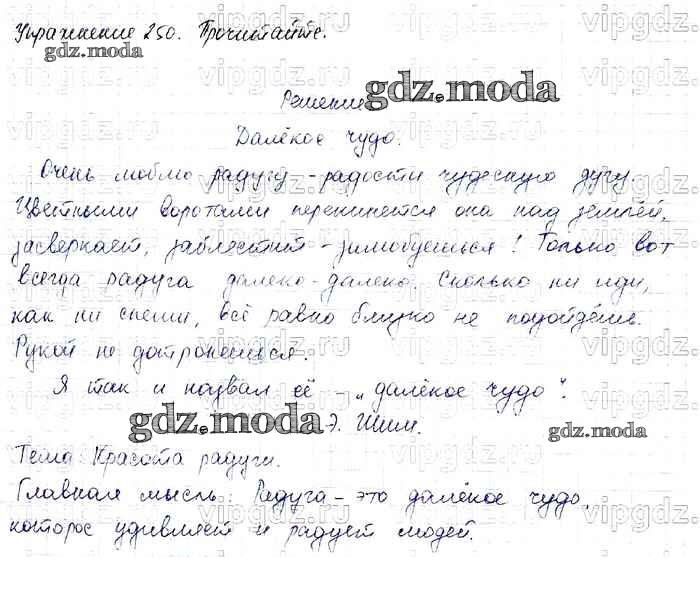 Упражнение 250. Прочитайте.
gdz.moda
Решение
gdz.moda
Далёкое чудо.
Очень люблю радугу - радости чудесную дугу.
Цветными воротами перекинется она над землёй,
засверкает, заблестит - залюбуешься! Только вот
всегда радуга далеко-далеко. Сколько ни иди,
как ни спеши, всё равно близко не подойдёшь.
Рукой не дотронешься.
Я так и назвал её - „далёкое чудо".
gdz.moda
Э. Шим.
gdz.moda
Тема: Красота радуги.
Главная мысль: Радуга - это далёкое чудо,
которое удивляет и радует людей.